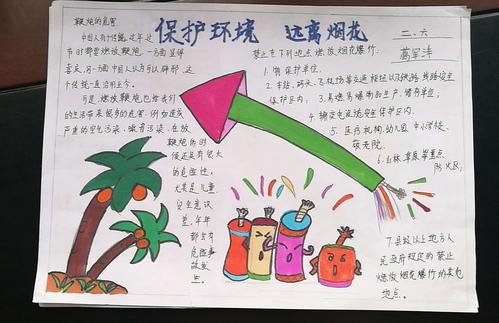 保护环境 远离烟花
二.六
鞭炮的危害
中国人有个习惯,过年过
节时都要燃放鞭炮,一方面显得
喜庆,另一方面中国人认为可以辟邪,这
个传统一直沿用至今。
可是,燃放鞭炮也给我们
的生活带来很多的危害,例如造成
严重的空气污染、噪音污染,在放
鞭炮的时
候还具有很大
的危险性,
尤其是儿童
安全意识
差,年年
都会有
危险事
故发
生。
禁止在下列地点燃放烟花爆竹:
1.物保护单位.
2.车站、码头、飞机场等交通枢纽以及铁路线路安全
保护区内.
3.易燃易爆物品生产、储存单位;
4.输变电设施安全保护区内.
5.医疗机构、幼儿园、中小学校、
敬老院.
6.山林、草原等重点
防火区.
7.县级以上地方人
民政府规定的禁止
燃放烟花爆竹的其他
地点.